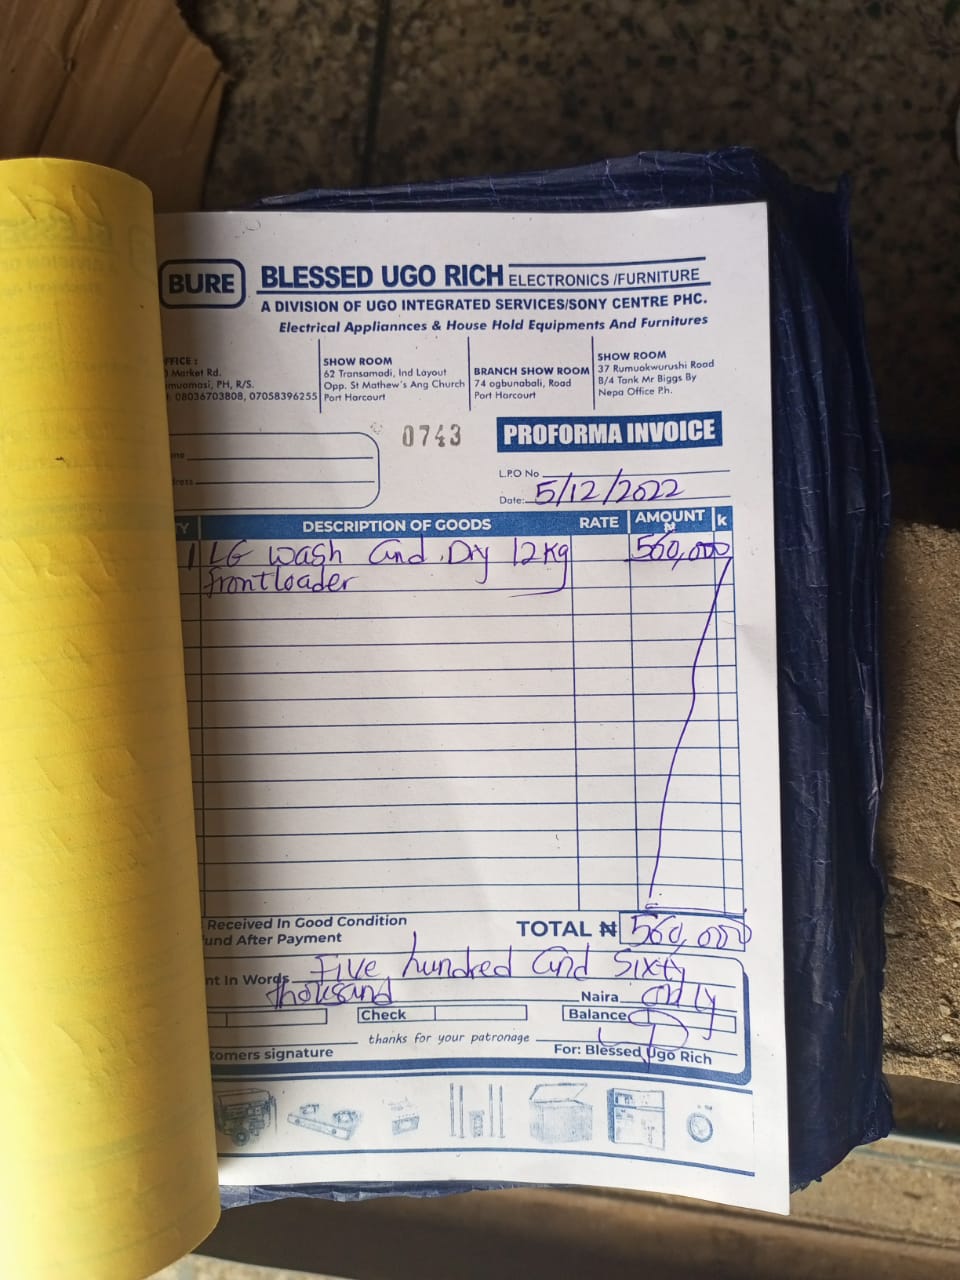 BURE
BLESSED UGO RICH ELECTRONICS /FURNITURE
A DIVISION OF UGO INTEGRATED SERVICES/SONY CENTRE PHC.
Electrical Appliannces & House Hold Equipments And Furnitures
FFICE :
Market Rd.
muomasi, PH, R/S.
08036703808, 07058396255
SHOW ROOM
62 Transamadi, Ind Layout
Opp. St Mathew's Ang Church
Port Harcourt
BRANCH SHOW ROOM
74 ogbunabali, Road
Port Harcourt
SHOW ROOM
37 Rumuokwurushi Road
B/4 Tank Mr Biggs By
Nepa Office Ph.
0743
PROFORMA INVOICE
me
dress
L.P.O No
Date: 5/12/2022
TY DESCRIPTION OF GOODS RATE AMOUNT ₦ k
1 LG wash and Dry 12kg 560,000
frontloader
Received In Good Condition
und After Payment
TOTAL ₦ 560,000
nt In Words Five hundred and Sixty
thousand Naira only
Check Balance
thanks for your patronage
tomers signature For: Blessed Ugo Rich